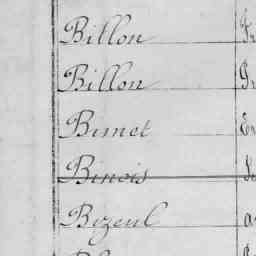 Billon
Billon
Bimet
Binois
Bizeul